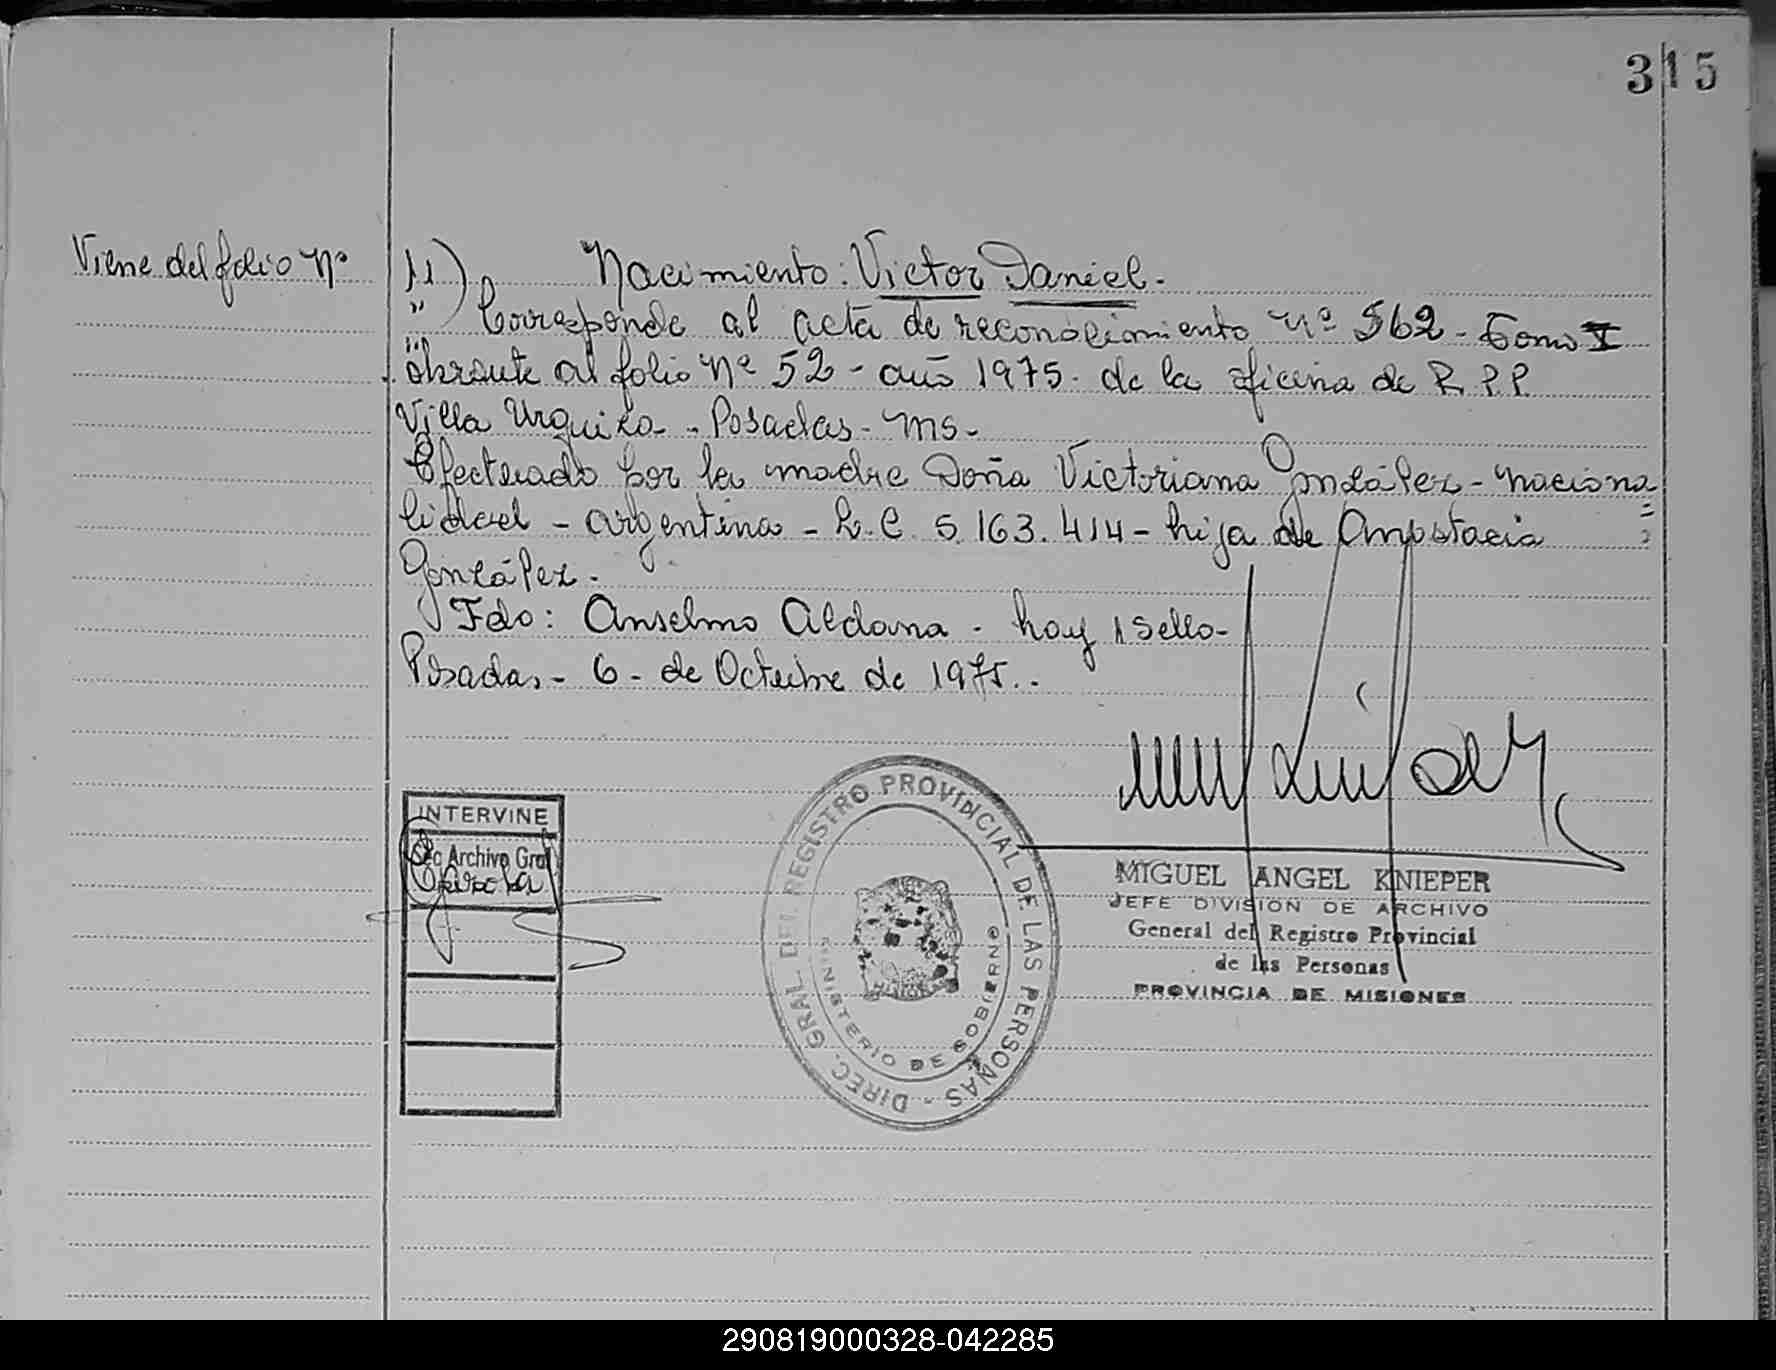 315
Viene del folio Nº 11) Nacimiento: Victor Daniel.-
" Corresponde al acta de reconocimiento Nº 562 - Tomo I
obrante al folio Nº 52 - año 1975 - de la oficina de R.P.P.
Villa Urquiza - Posadas - Ms -
Efectuado por la madre Doña Victoriana González - naciona=
lidad - argentina - L.C. 5.163.414 - hija de Anastacia
González.
Fdo: Anselmo Aldana - hay 1 sello -
Posadas, - 6 - de Octubre de 1975. -
INTERVINE
Sec Archivo Gral
DIREC. GRAL. DEL REGISTRO PROVINCIAL DE LAS PERSONAS -
MINISTERIO DE GOBIERNO
MIGUEL ANGEL KNIEPER
JEFE DIVISION DE ARCHIVO
General del Registro Provincial
de las Personas
PROVINCIA DE MISIONES
290819000328-042285